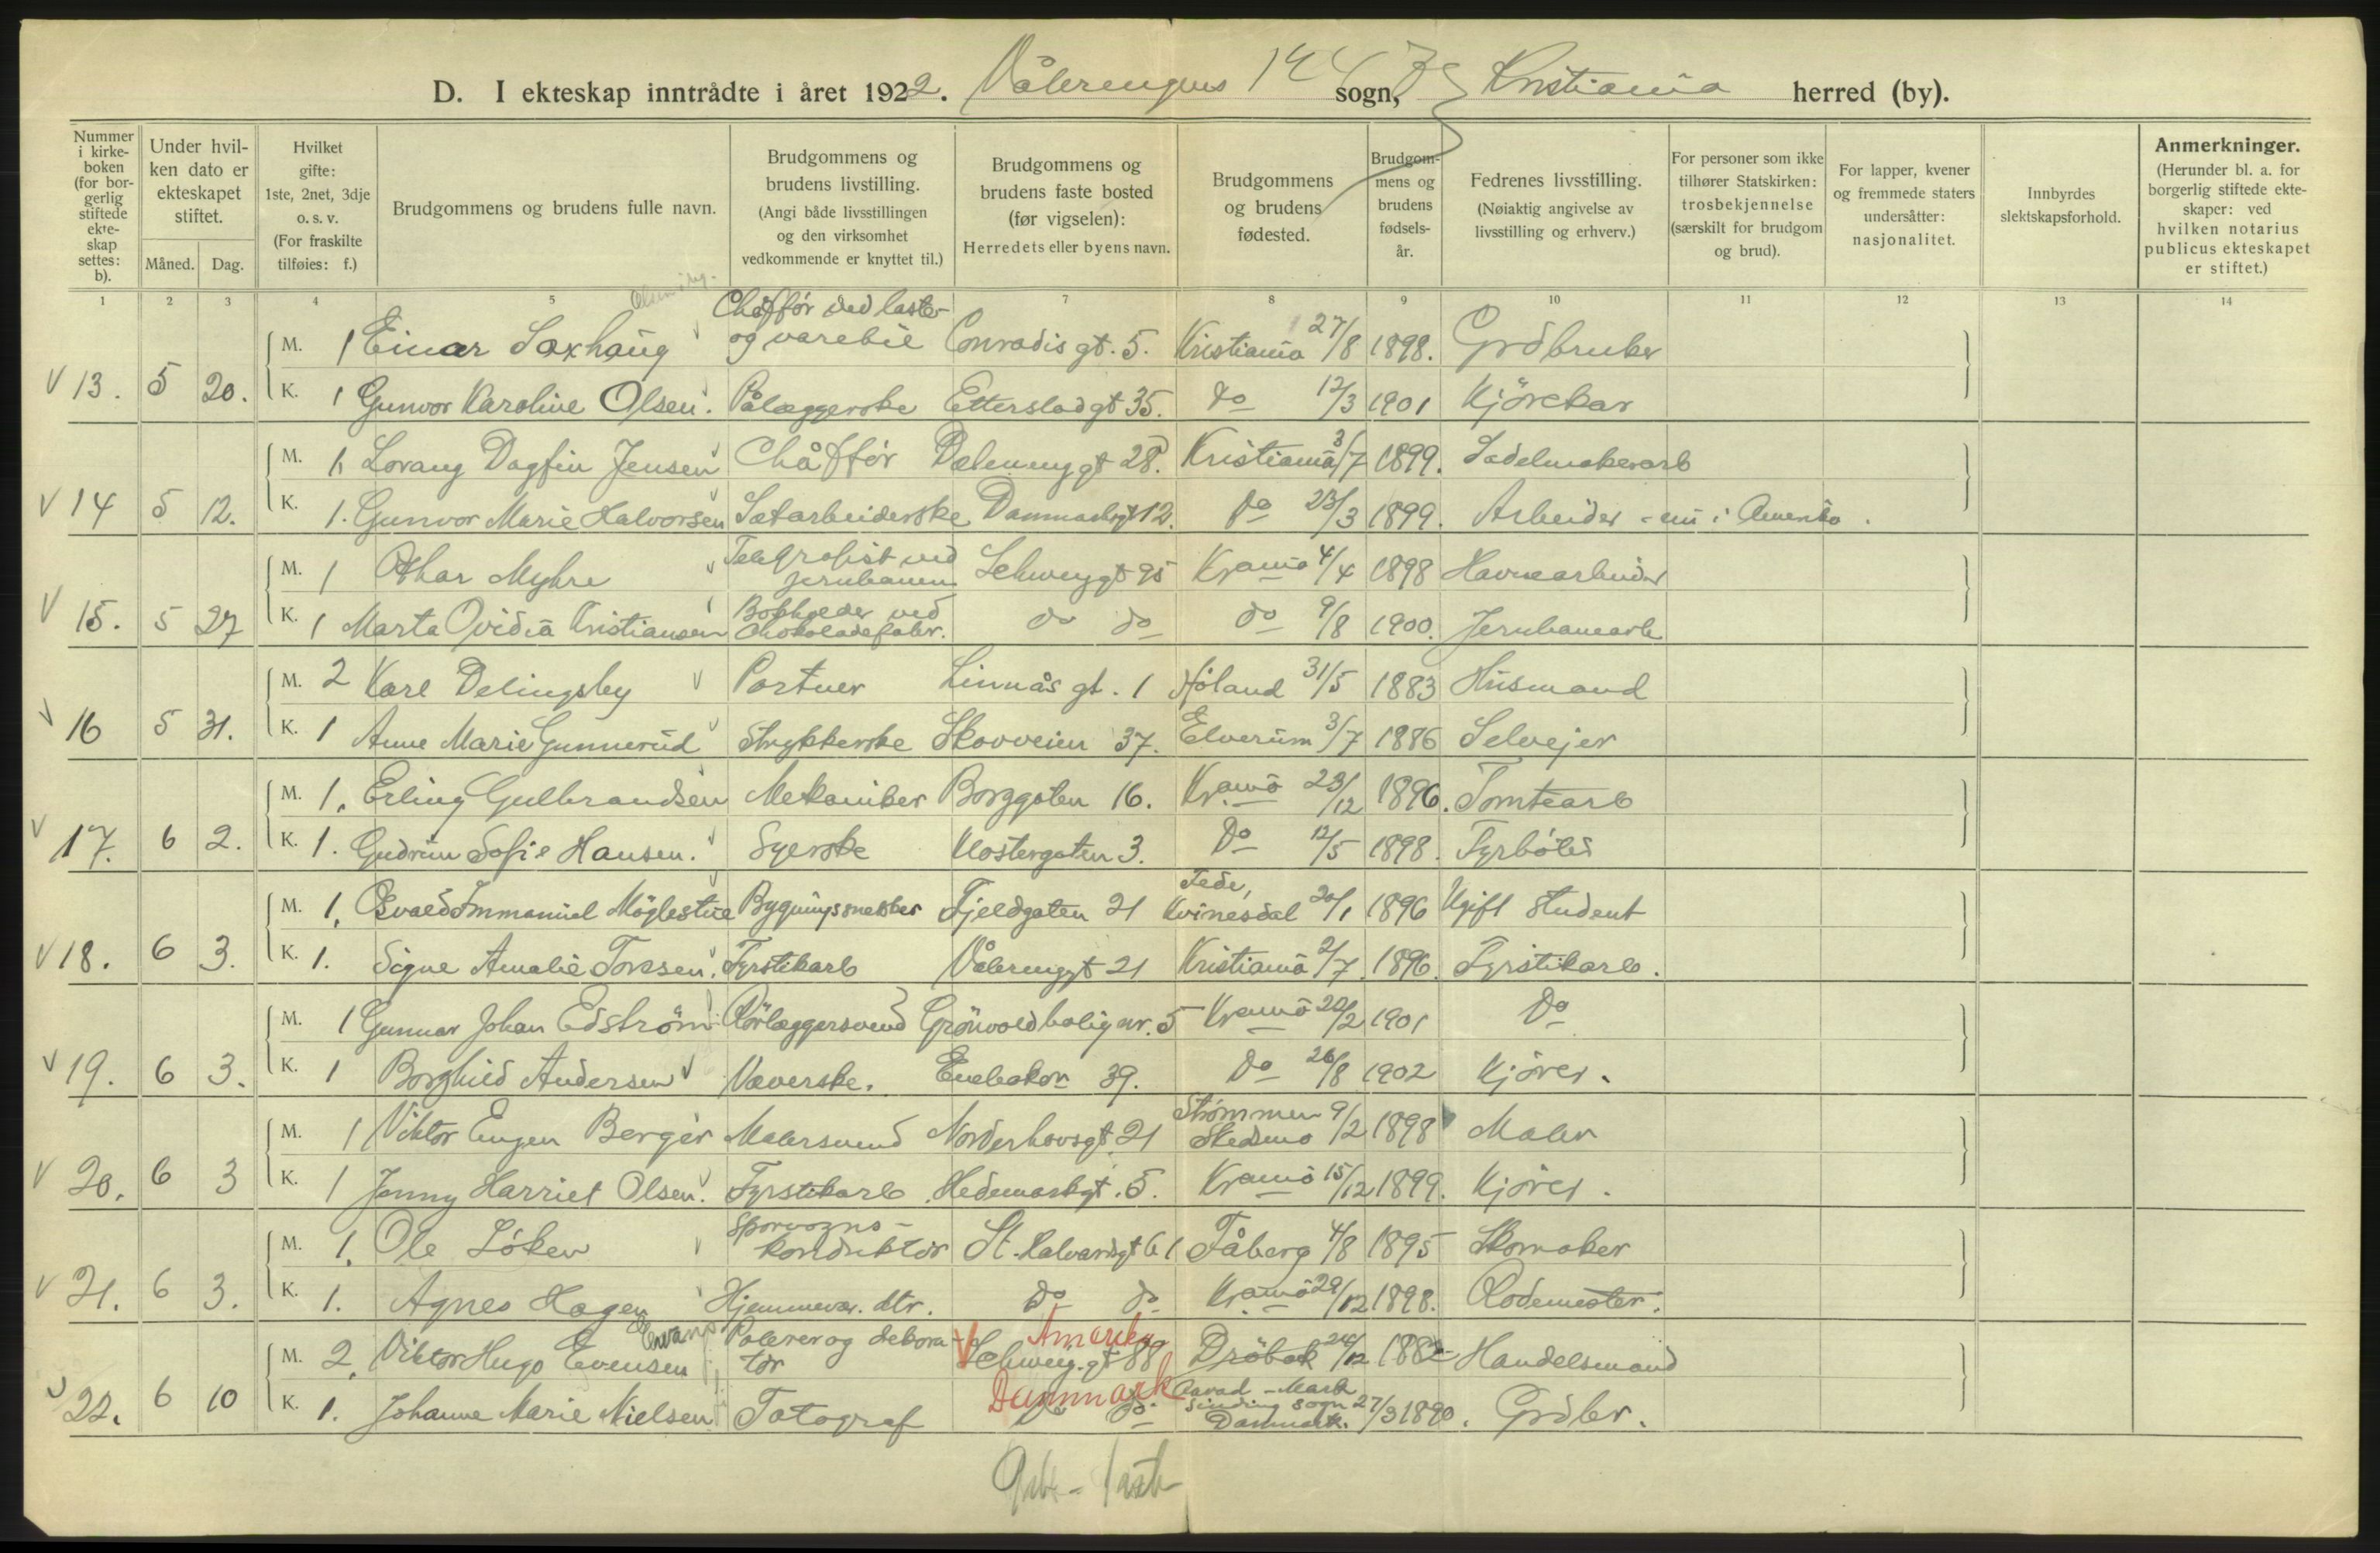 D. I ekteskap inntrådte i året 1922. Vålerengens 144 sogn, Kristiania herred (by).
Nummer i kirkeboken (for borgerlig stiftede ekteskap settes: b).
Under hvilken dato er ekteskapet stiftet.
Måned. Dag.
Hvilket gifte: 1ste, 2net, 3dje o. s. v. (For fraskilte tilføies: f.)
Brudgommens og brudens fulle navn.
Brudgommens og brudens livstilling. (Angi både livsstillingen og den virksomhet vedkommende er knyttet til.)
Brudgommens og brudens faste bosted (før vigselen): Herredets eller byens navn.
Brudgommens og brudens fødested.
Brudgommens og brudens fødselsår.
Fedrenes livsstilling. (Nøiaktig angivelse av livsstilling og erhverv.)
For personer som ikke tilhører Statskirken: trosbekjennelse (særskilt for brudgom og brud).
For lapper, kvener og fremmede staters undersåtter: nasjonalitet.
Innbyrdes slektskapsforhold.
Anmerkninger. (Herunder bl. a. for borgerlig stiftede ekteskaper: ved hvilken notarius publicus ekteskapet er stiftet.)
1 2 3 4 5 7 8 9 10 11 12 13 14
M. 1 Einar Saxhaug Chåffør ved laste- og varebil Conradis gt. 5. Kristiania 27/8 1898. Grdbruker
V 13. 5 20. K. 1 Gunvor Karoline Olsen. Pålæggerske Etterstadgt 35. do 12/3 1901 Kjørekar
M. 1. Lorang Dagfin Jensen Chåffør Dælenenggt 28. Kristiania 3/7 1899. Sadelmakerarb
V 14 5 12. K. 1. Gunvor Marie Halvorsen Sætarbeiderske Danmarksgt 12. do 23/3 1899. Arbeider - nu i Amerika.
M. 1 Othar Myhre Telegrafist ved jernbanen Schweigt 95 Krania 4/4 1898 Havnearbeider
V 15. 5 27 K. 1 Marta Ovidia Kristiansen Bokholder ved Chokoladefabr. do do do 9/8 1900. Jernbanearb
M. 2 Karl Delingsby Portner Linnås gt. 1 Høland 31/5 1883 Husmand
V 16 5 31. K. 1 Anne Marie Gunnerud Strykkerske Skovveien 37. Elverum 3/7 1886 Selvejer
M. 1. Erling Gulbrandsen Mekaniker Borggaten 16. Krania 23/12 1896. Tomtearb
V 17. 6 2. K. 1. Gudrun Sofie Hansen. Syerske Klostergaten 3. Do 12/5 1898. Fyrbøter
M. 1. Osvald Immanuel Møglestue Bygningssnekker Fjeldgaten 21 Fede, Kvinesdal 20/1 1896 Ugift student
V 18. 6 3. K. 1. Signe Amalie Toresen. Fyrstikarb Vålerenggt 21 Kristiania 2/7 1896. Fyrstikarb.
M. 1 Gunnar Johan Edstrøm Rørlæggersvend Grønvoldbolig nr. 5 Krania 20/2 1901 Do
V 19. 6 3. K. 1 Borghild Andersen Væverske. Enebakvn 39. Do 26/8 1902 Kjører.
M. 1 Viktor Eugen Berger Malersvend Norderhovsgt. 21 Strømmen Skedsmo 9/2 1898 Maler
V 20. 6 3 K. 1 Jenny Harriet Olsen. Fyrstikarb. Hedemarkgt. 5. Krania 15/12 1899. Kjører.
M. 1. Ole Løken Sporvogns-konduktør St. Halvardsgt 61 Fåberg 4/8 1895 Skomaker
V 21. 6 3. K. 1. Agnes Hagen Hjemmevær. dtr. Do do Krania 29/12 1898. Rodemester.
M. 2. Viktor Hugo Evensen Polerer og dekoratør V Amerika Schweig.gt 88 Drøbak 24/12 1882 Handelsmand
V 22. 6 10 K. 1. Johanne Marie Nielsen Fotograf Danmark Do do Sinding sogn Danmark. 27/3 1890. Grdbr.